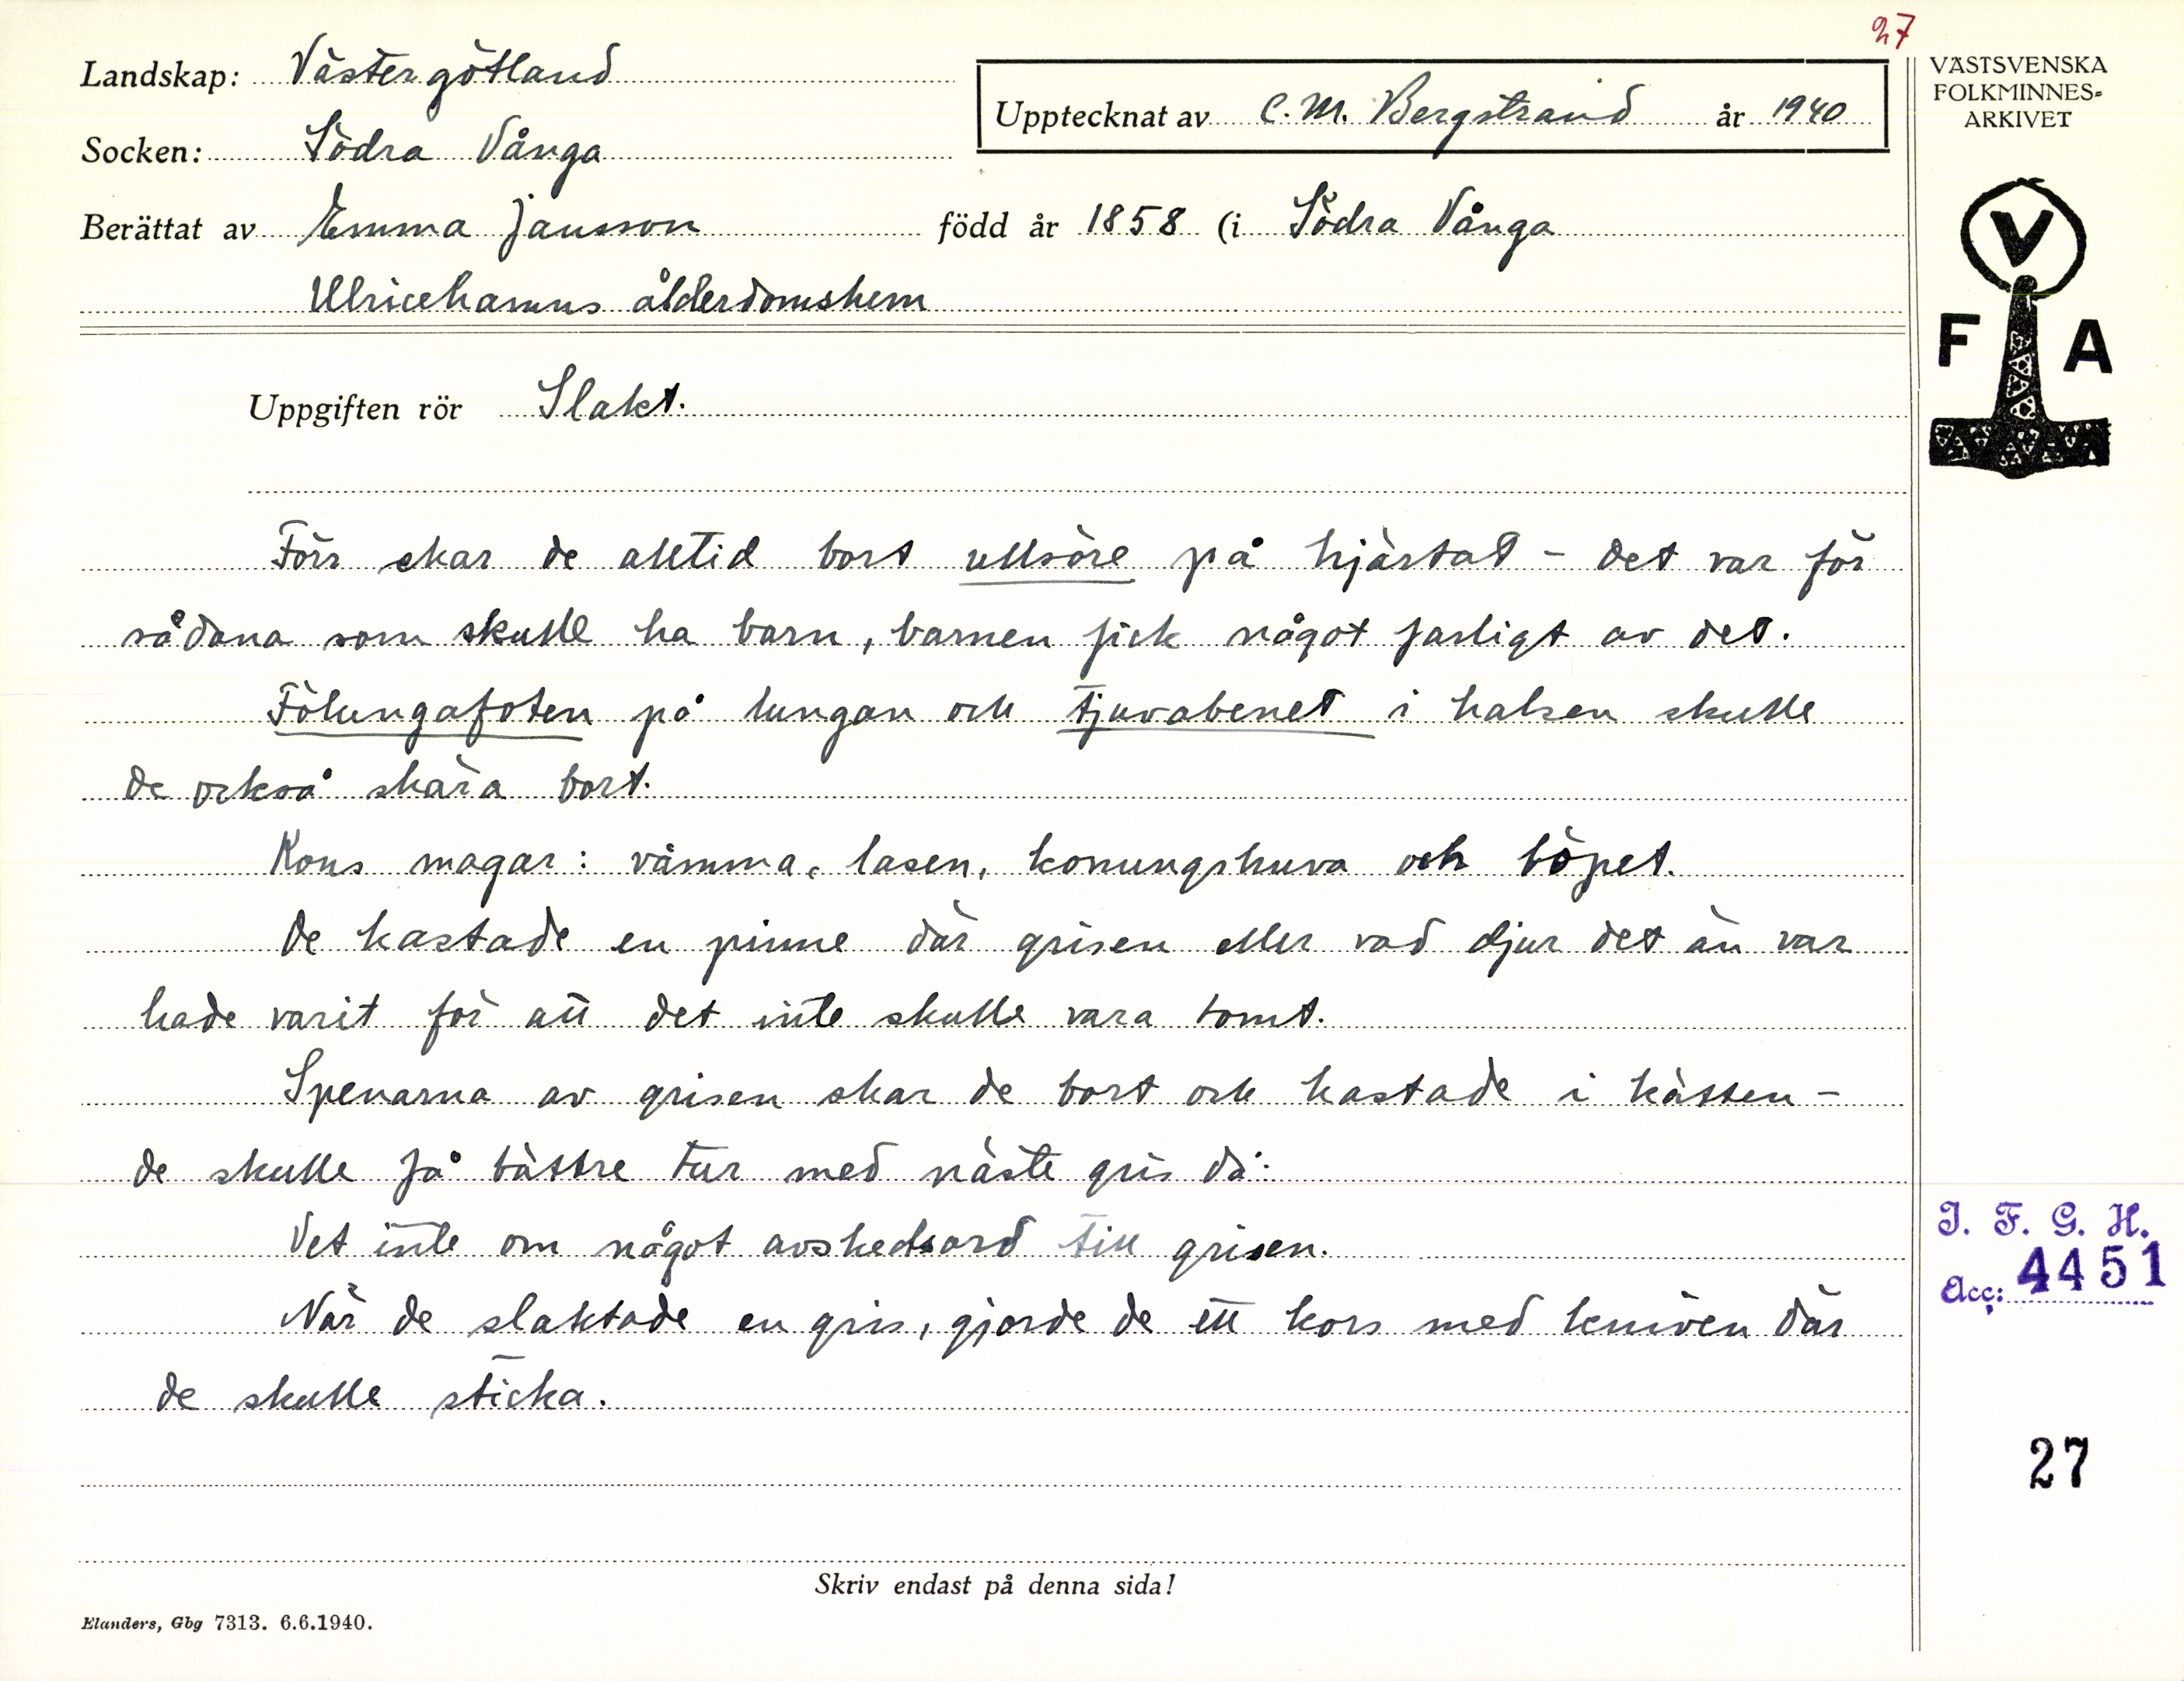 27
Landskap: Västergötland
Upptecknat av C. M. Bergstrand år 1940
Socken: Södra Vånga
Berättat av Emma Jansson född år 1858 (i Södra Vånga
Ulricehamns ålderdomshem
VÄSTSVENSKA
FOLKMINNES-
ARKIVET
V
F A
Uppgiften rör Slakt.
Förr skar de alltid bort ullsöre på hjärtat - det var för
sådana som skulle ha barn, barnen fick något farligt av det.
Fölungafoten på lungan och tjuvabenet i halsen skulle
de också skära bort.
Kons magar: våmma, lasen, konungshuva och löpet.
De kastade en pinne där grisen eller vad djur det än var
hade varit för att det inte skulle vara tomt.
Spenarna av grisen skar de bort och kastade i kätten -
de skulle få bättre tur med näste gris då.
Vet inte om något avskedsord till grisen.
När de slaktade en gris, gjorde de ett kors med kniven där
de skulle sticka.
I. F. G. H.
Acc: 4451
27
Skriv endast på denna sida!
Elanders, Gbg 7313. 6.6.1940.